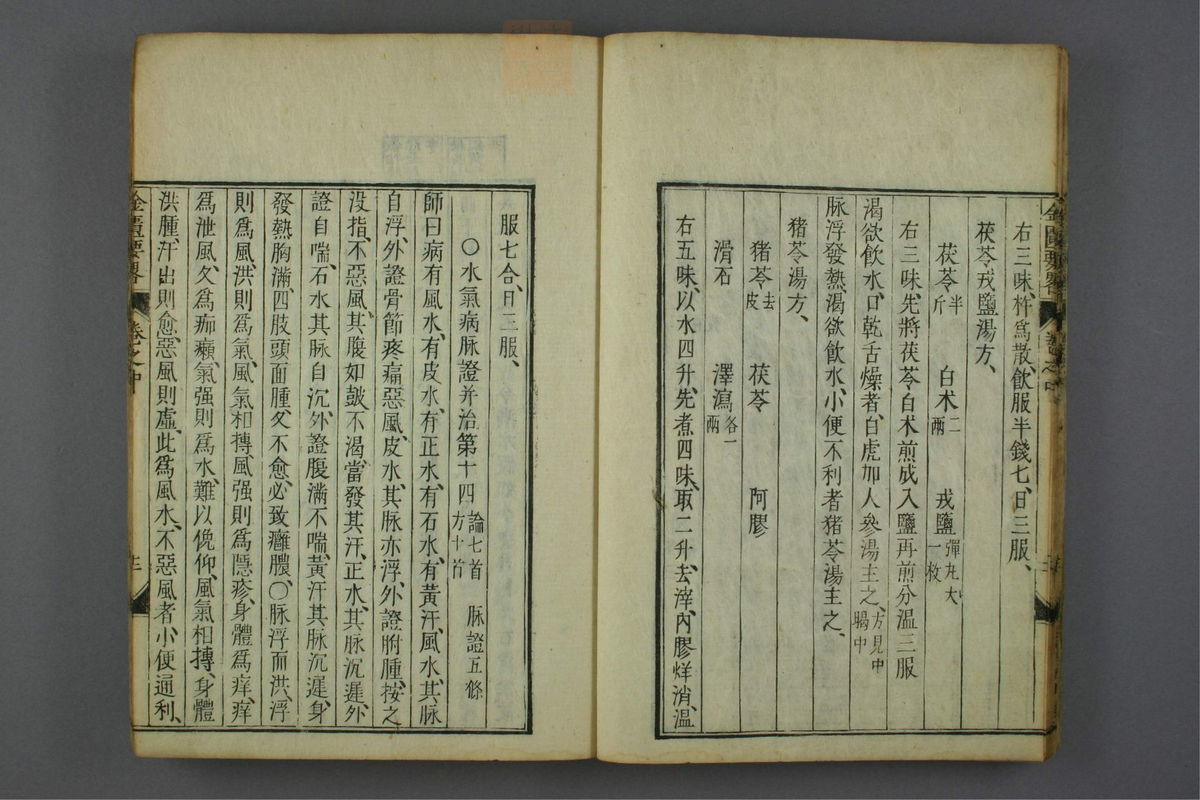 右三味、杵爲散、飲服半錢匕、日三服、
茯苓戎鹽湯方、
茯苓半斤 白朮二兩 戎鹽彈丸大一枚
右三味、先將茯苓白朮煎成入鹽再煎分溫三服
渴欲飲水、口乾舌燥者、白虎加人參湯主之、方見中暍中
脉浮發熱、渴欲飲水、小便不利者、猪苓湯主之、
猪苓湯方、
猪苓去皮 茯苓 阿膠
滑石 澤瀉各一兩
右五味、以水四升、先煮四味、取二升、去滓、內膠烊消、溫
服七合、日三服、
○水氣病脉證并治第十四 論七首 脉證五條 方十首
師曰、病有風水、有皮水、有正水、有石水、有黃汗、風水、其脉
自浮、外證骨節疼痛、惡風、皮水、其脉亦浮、外證胕腫、按之
沒指、不惡風、其腹如鼓、不渴、當發其汗、正水、其脉沉遲、外
證自喘、石水、其脉自沉、外證腹滿不喘、黃汗、其脉沉遲、身
發熱、胸滿、四肢頭面腫、久不愈、必致癰膿、○脉浮而洪、浮
則爲風、洪則爲氣、風氣相摶、風强則爲隱疹、身體爲痒、痒
爲泄風、久爲痂癩、氣强則爲水、難以俛仰、風氣相摶、身體
洪腫、汗出則愈、惡風則虛、此爲風水、不惡風者、小便通利、
金匱要畧 卷之中